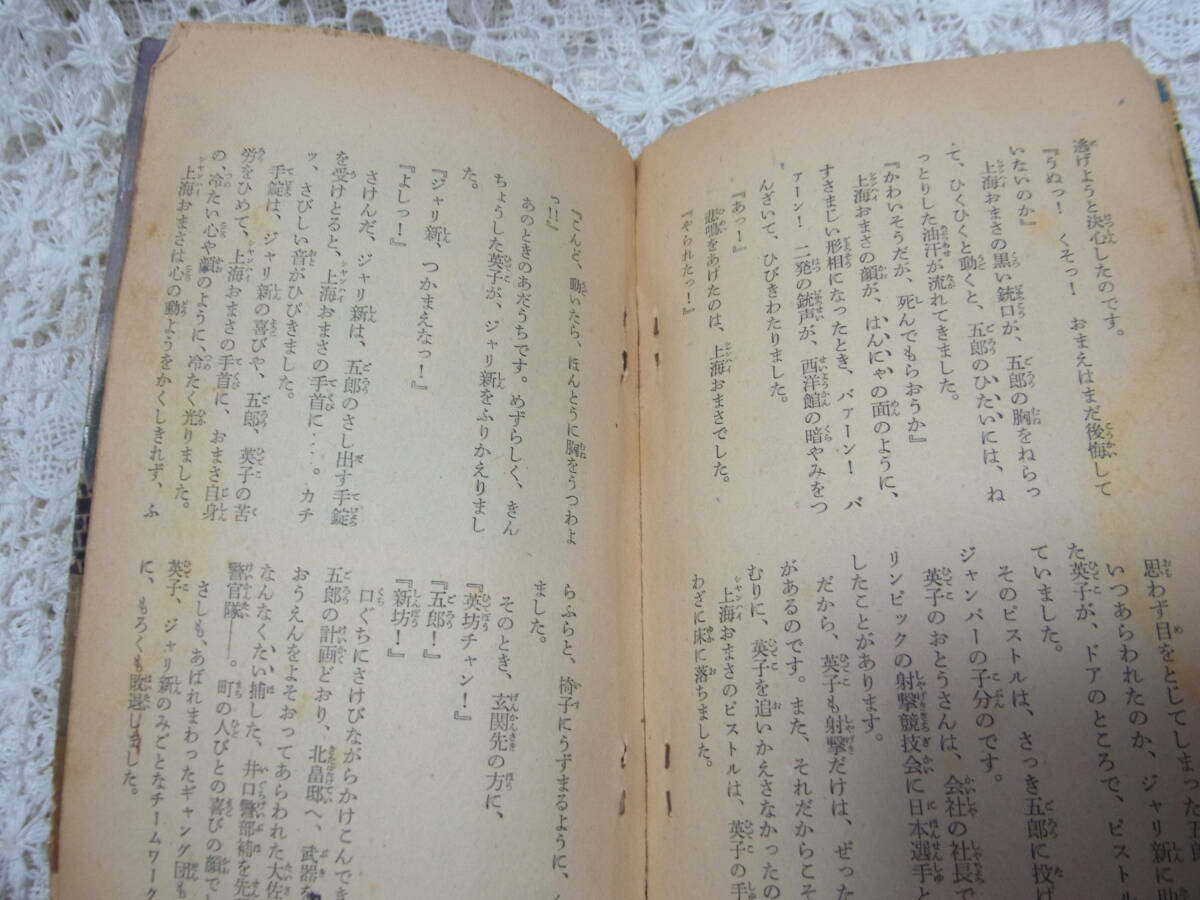 逃げようと決心したのです。
『うぬっ！　くそっ！　おまえはまだ後悔して
いないのか』
上海おまさの黒い銃口が、五郎の胸をねらっ
て、ひくひくと動くと、五郎のひたいには、ね
っとりした油汗が流れてきました。
『かわいそうだが、死んでもらおうか』
上海おまさの顔が、はんにゃの面のように、
すさまじい形相になったとき、バァーン！　バ
ァーン！　二発の銃声が、西洋館の暗やみをつ
んざいて、ひびきわたりました。
『あっ！』
悲鳴をあげたのは、上海おまさでした。
『やられたっ！』
思わず目をとしてしまった
いつあらわれたのか、ジャリ新に
た英子が、ドアのところで、ピストル
ていました。
そのピストルは、さっき五郎に投げ
ジャンパーの子分のです。
英子のおとうさんは、会社の社長で
リンピックの射撃競技会に日本選手と
したことがあります。
だから、英子も射撃だけは、ぜった
があるのです。また、それだからこそ
むりに、英子を追いかえさなかったの
上海おまさのピストルは、英子の手
わざに床に落ちました。
『こんど、動いたら、ほんとうに胸をうつわよ
っ！』
あのときのあだうちです。めずらしく、きん
ちょうした英子が、ジャリ新をふりかえりまし
た。
『ジャリ新、つかまえなっ！』
『よしっ！』
さけんだ、ジャリ新は、五郎のさし出す手錠
を受けとると、上海おまさの手首に‥‥。カチ
ッ、さびしい音がひびきました。
手錠は、ジャリ新の喜びや、五郎、英子の苦
労をひめて、上海おまさの手首に、おまさ自身
の、冷たい心や顔のように、冷たく光りました。
上海おまさは心の動ようをかくしきれず、ふ
らふらと、椅子にうずまるように、
ました。
そのとき、玄関先の方に、
『英坊チャン！』
『五郎！』
『新坊！』
口ぐちにさけびながらかけこんでき
五郎の計画どおり、北畠邸へ、武器を
おうえんをよそおってあらわれた大佐
なんなくたい捕した、井口警部補を先
警官隊――。町の人びとの喜びの顔で
さしも、あばれまわったギャング団も
英子、ジャリ新のみごとなチームワーク
に、もろくも敗退しました。